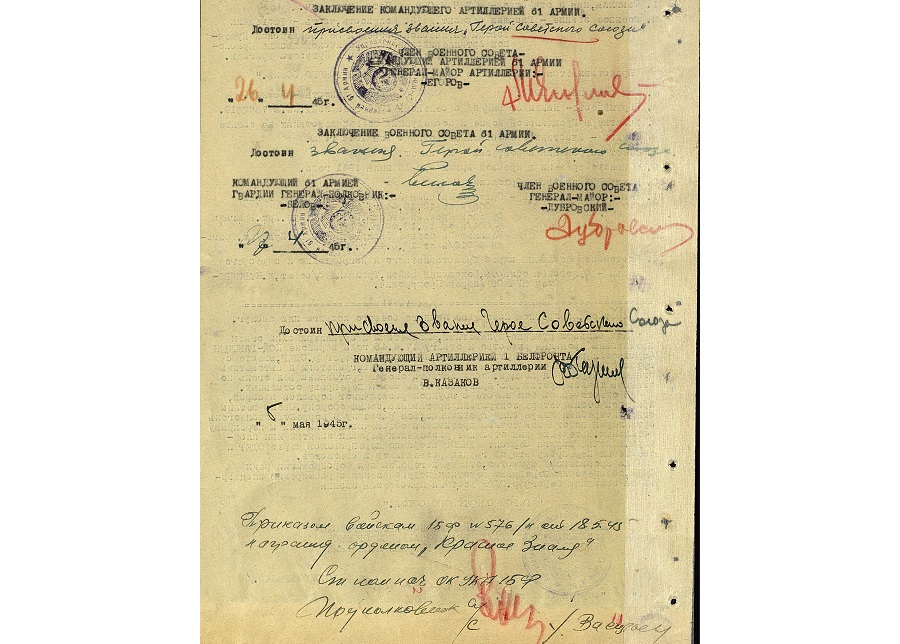 ЗАКЛЮЧЕНИЕ КОМАНДУЮЩЕГО АРТИЛЛЕРИЕЙ 61 АРМИИ.
Достоин присвоения звания "Герой Советского Союза"
ЧЛЕН ВОЕННОГО СОВЕТА-
КОМАНДУЮЩИЙ АРТИЛЛЕРИЕЙ 61 АРМИИ
ГЕНЕРАЛ-МАЙОР АРТИЛЛЕРИИ:-
-ЕГОРОВ-
"26" 4 45г.
ЗАКЛЮЧЕНИЕ ВОЕННОГО СОВЕТА 61 АРМИИ.
Достоин звания Герой Советского Союза
КОМАНДУЮЩИЙ 61 АРМИЕЙ
ГВАРДИИ ГЕНЕРАЛ-ПОЛКОВНИК:-
-БЕЛОВ-
ЧЛЕН ВОЕННОГО СОВЕТА
ГЕНЕРАЛ-МАЙОР:-
-ДУБРОВСКИЙ-
4 45г.
Достоин присвоения Звания Героя Советского Союза"
КОМАНДУЮЩИЙ АРТИЛЛЕРИЕЙ 1 БЕЛФРОНТА
Генерал-полковник артиллерии
В.КАЗАКОВ
" мая 1945г.
Приказом войскам 1БФ №576/н от 18.5.45
орденом "Красное Знамя"
1БФ
Подполковник